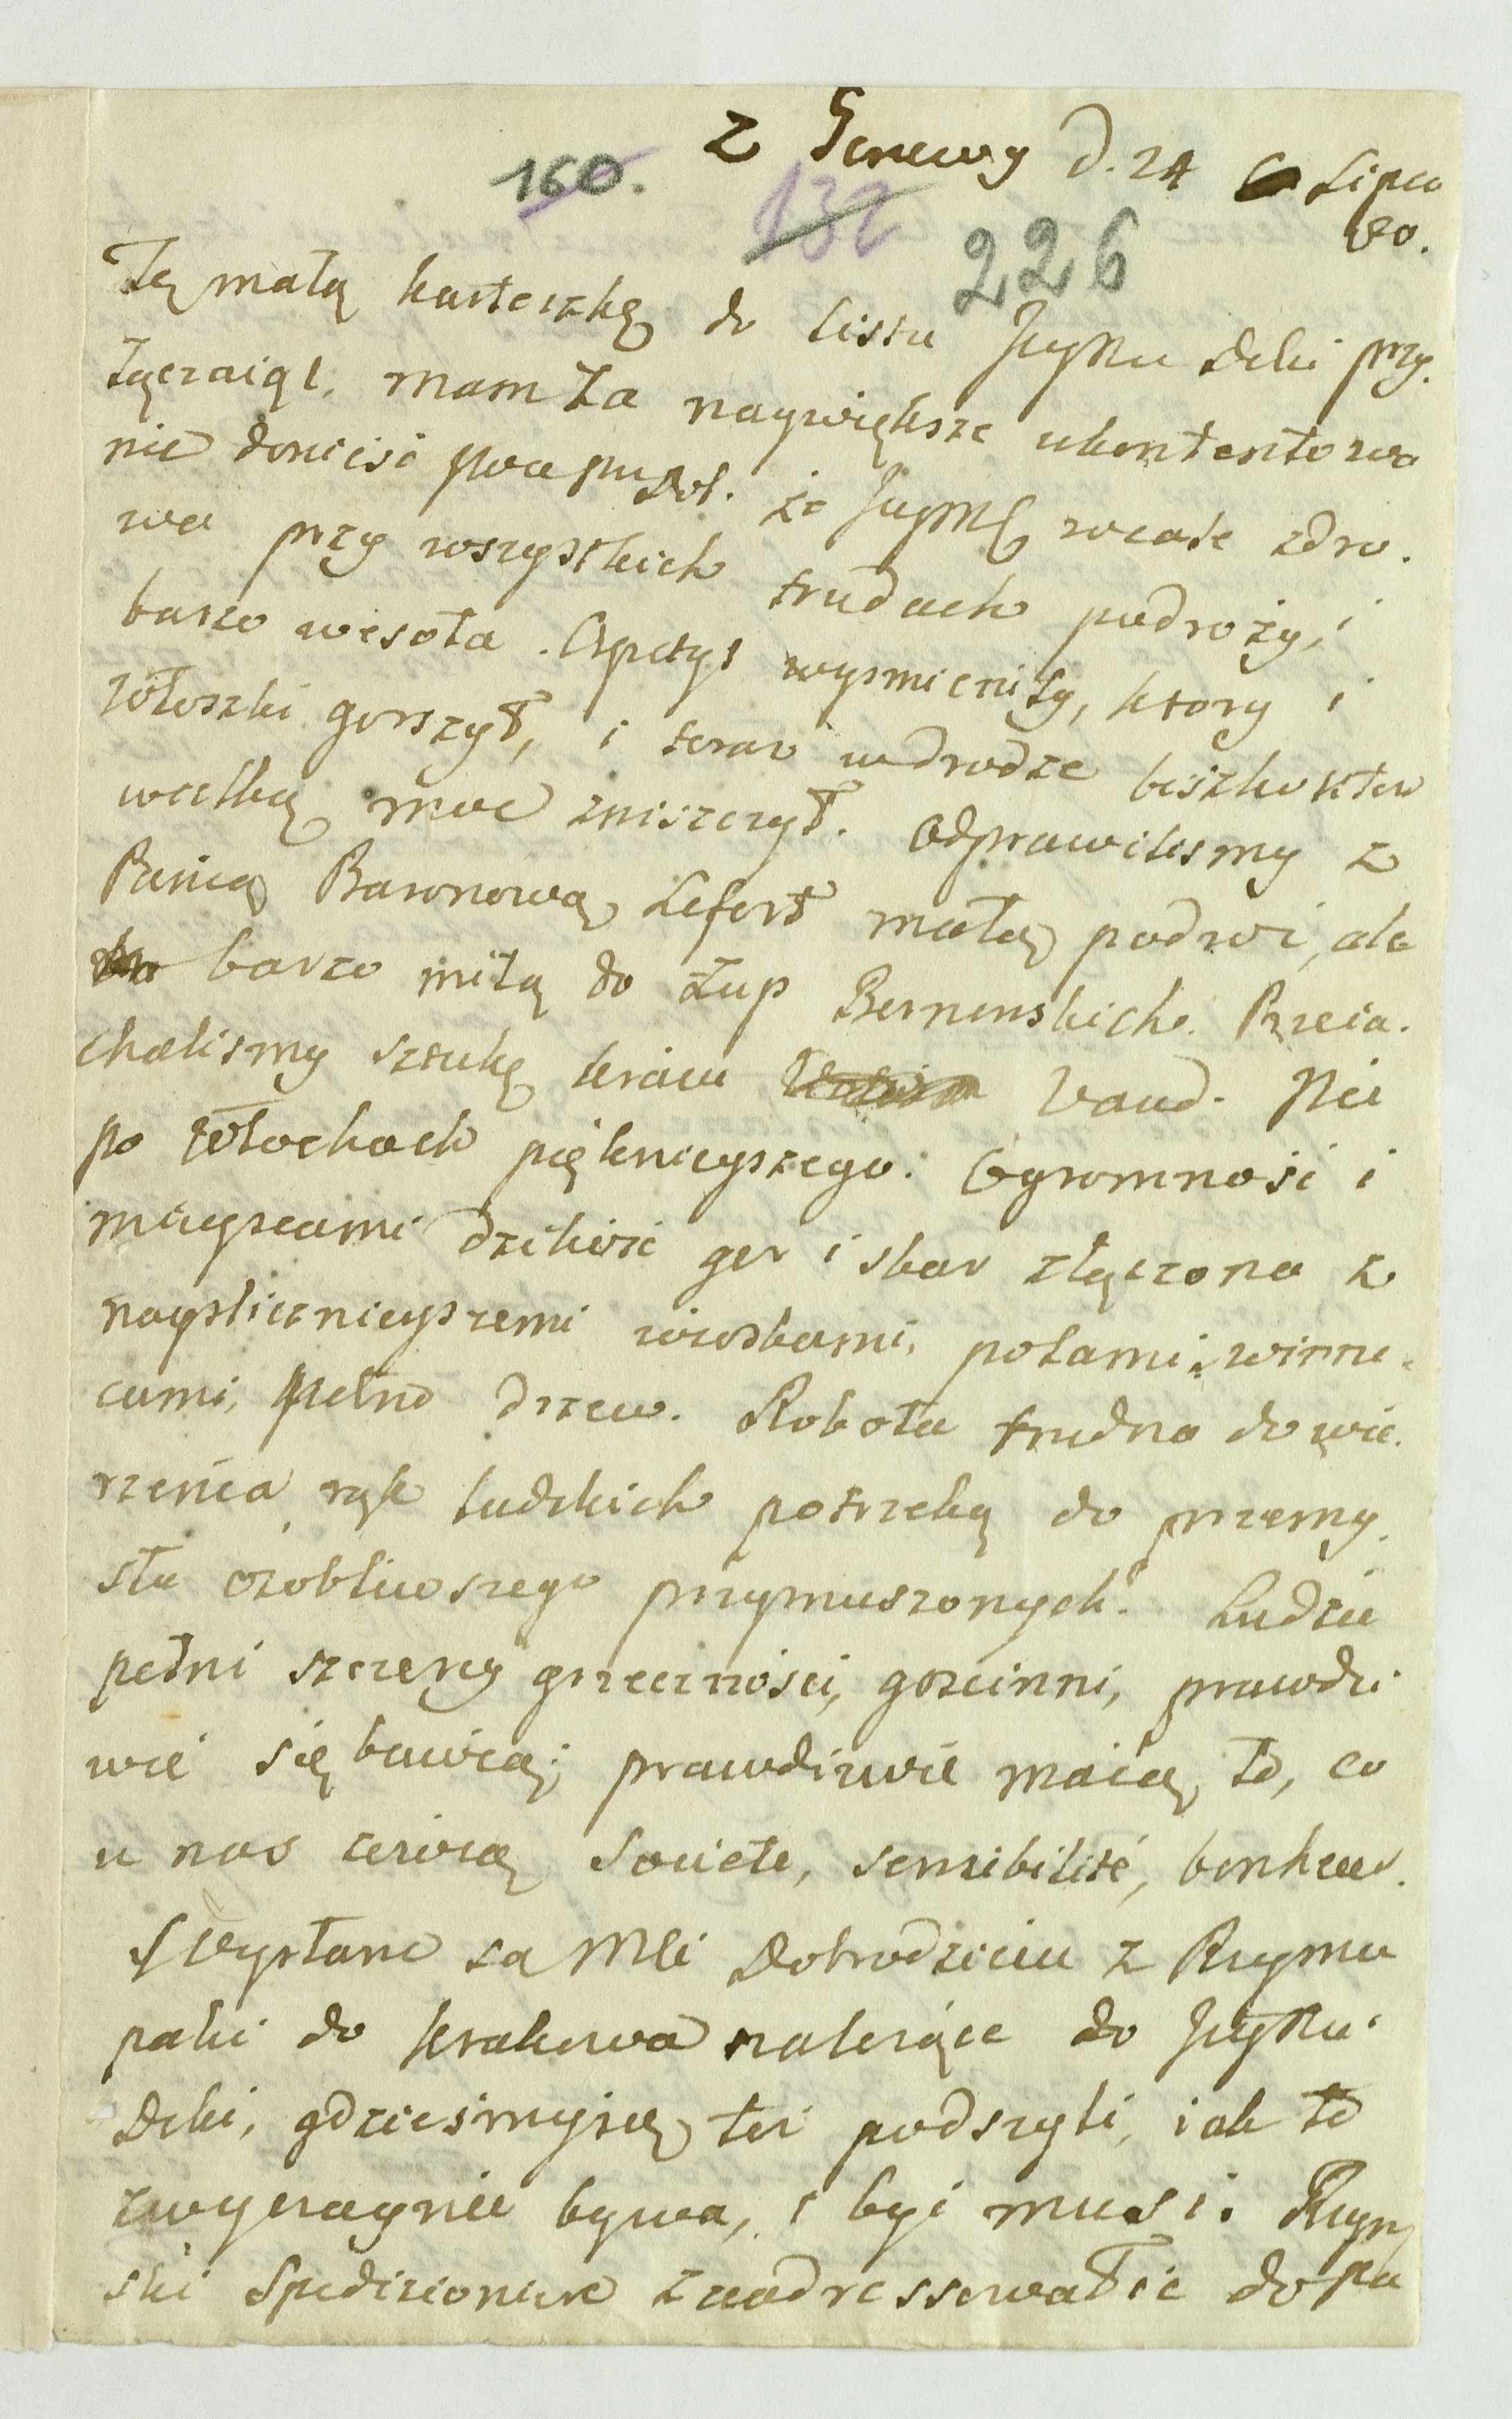 160. Z Genewy d. 24 Lipca
132 80.
226
Tę małą karteczkę do listu JeyMci Dzki przy.
łączaiąc, mam za naywiększe ukontentowa
nie donieść Dob. że JeyMć wcale zdro.
wa przy wszystkich trudach podroży, i
barzo wesoła. Apetyt wysmienity, ktory i
Włoszki gorszył, i teraz w drodze biszkoktow
wielką moc zniszczył. Odprawilismy z
Panią Baronową Lefort małą podroż, ale
barzo miłą do żup Bernenskich. Przeia.
chalismy sztukę kraiu Vaud. Nic
po Włochach pięknieyszego. Ogromność i
mieyscami dzikość gor i skał złączona z
nayslicznieyszemi wioskami, polami, winni-
cami, pełno drzew. Robota trudna do wie.
rzenia rąk ludzkich potrzebą do przemy.
słu osobliwszego przymuszonych. Ludzie
pełni szczerey grzeczności, goscinni, prawdzi
wie się bawią; prawdziwie maią to, co
u nas zowią Societe, sensibilité, bonheur.
Wysłane są Mci Dobrodzieiu z Rzymu
paki do Krakowa należące do JeyMci
Dzki, gdzieśmy się też podszyli, iak to
zwyczaynie bywa, i być musi. Rzym
ski Spedizionier zaadressował ie do Pa